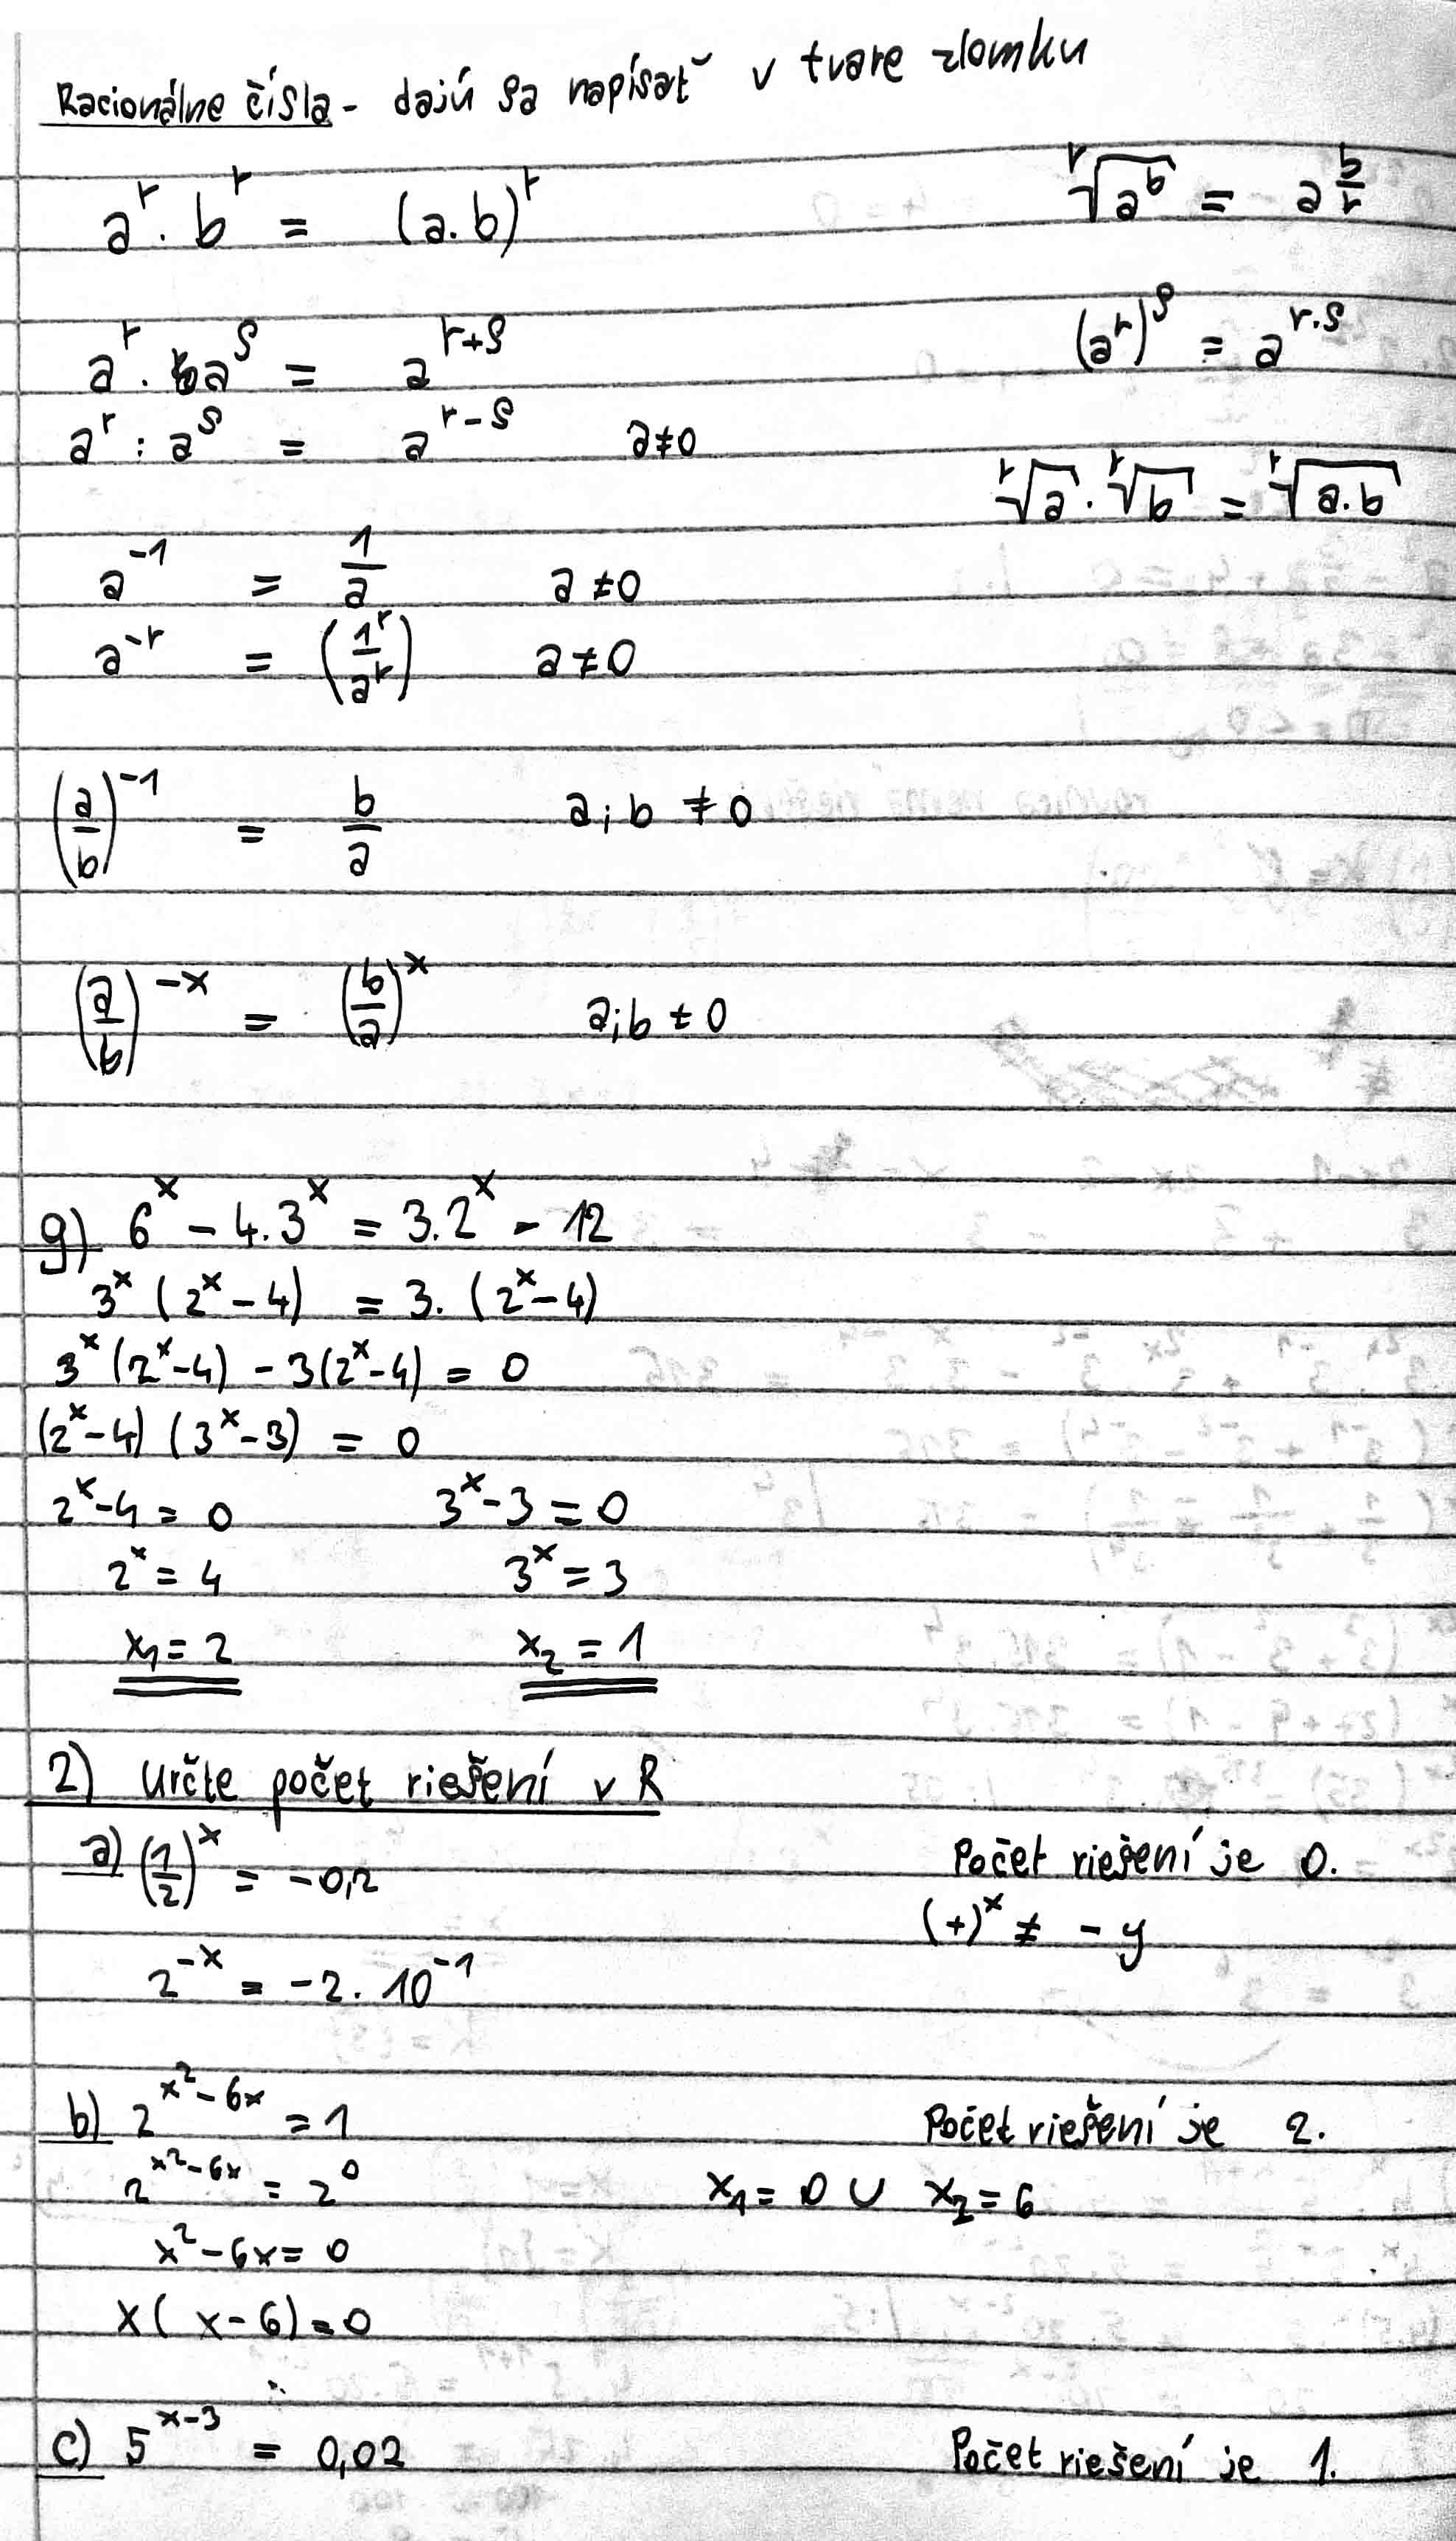 Racionálne čísla - dajú sa napísať v tvare zlomku
a^r . b^r = (a.b)^r    ʳ√(a^b) = a^(b/r)
a^r . a^s = a^(r+s)    (a^r)^s = a^(r.s)
a^r : a^s = a^(r-s)    a≠0
ʳ√a . ʳ√b = ʳ√(a.b)
a^(-1) = 1/a    a≠0
a^(-r) = (1^r/a^r)    a≠0
(a/b)^(-1) = b/a    a;b ≠ 0
(a/b)^(-x) = (b/a)^x    a;b ≠ 0
g) 6^x - 4.3^x = 3.2^x - 12
3^x (2^x - 4) = 3. (2^x - 4)
3^x (2^x - 4) - 3(2^x - 4) = 0
(2^x - 4) (3^x - 3) = 0
2^x - 4 = 0    3^x - 3 = 0
2^x = 4    3^x = 3
x₁ = 2    x₂ = 1
2) Určte počet riešení v R
a) (1/2)^x = -0,2    Počet riešení je 0.
(+)^x ≠ - y
2^(-x) = -2. 10^(-1)
b) 2^(x²-6x) = 1    Počet riešení je 2.
2^(x²-6x) = 2^0    x₁ = 0 ∪ x₂ = 6
x² - 6x = 0
x( x - 6) = 0
c) 5^(x-3) = 0,02    Počet riešení je 1.